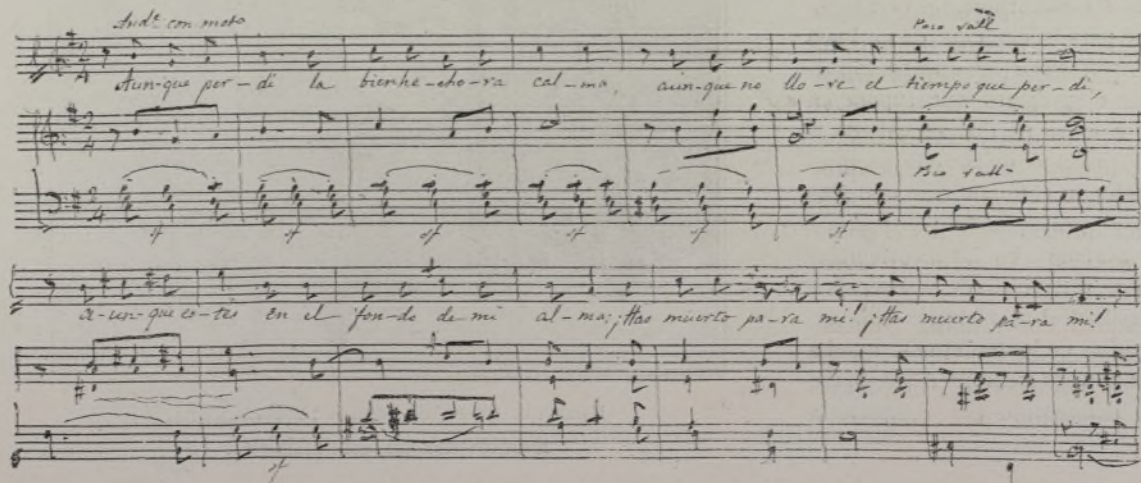 And.te con moto
Poco rall
Aun-que per-dí la bienhe-cho-ra cal-ma, aun-que no llo-re el tiempo que per-dí,
Poco rall-
sf sf sf sf sf sf
a-un-que es-tés en el fon-do de mi al-ma; ¡Has muerto pa-ra mi! ¡Has muerto pa-ra mi!
sf